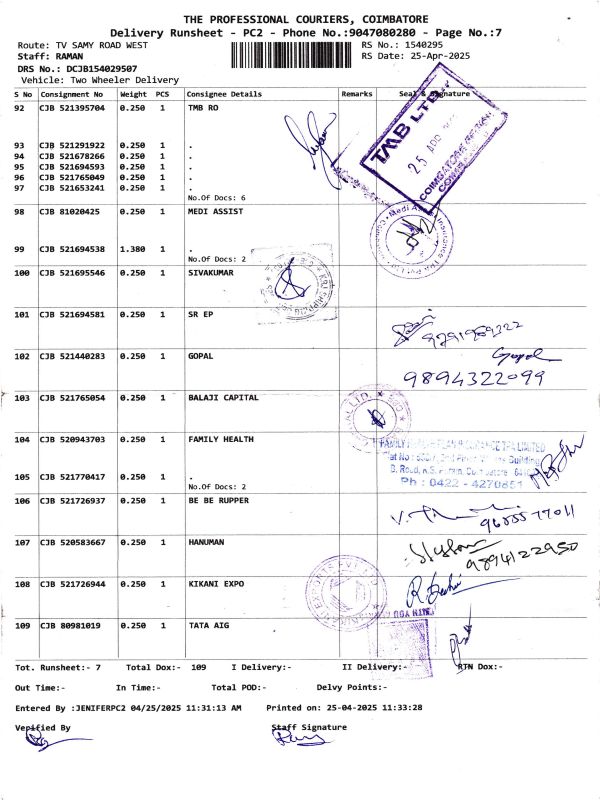 THE PROFESSIONAL COURIERS, COIMBATORE
Delivery Runsheet - PC2 - Phone No.:9047080280 - Page No.:7
Route: TV SAMY ROAD WEST RS No.: 1540295
Staff: RAMAN RS Date: 25-Apr-2025
DRS No.: DCJB154029507
Vehicle: Two Wheeler Delivery
S No Consignment No Weight PCS Consignee Details Remarks Seal & Signature
92 CJB 521395704 0.250 1 TMB RO
TMB LTD
25 APR
93 CJB 521291922 0.250 1 .
94 CJB 521678266 0.250 1 .
95 CJB 521694593 0.250 1 .
96 CJB 521765049 0.250 1 .
97 CJB 521653241 0.250 1 .
No.Of Docs: 6
98 CJB 81020425 0.250 1 MEDI ASSIST
99 CJB 521694538 1.380 1 .
No.Of Docs: 2
100 CJB 521695546 0.250 1 SIVAKUMAR
101 CJB 521694581 0.250 1 SR EP
102 CJB 521440283 0.250 1 GOPAL
Gopal
9894322099
103 CJB 521765054 0.250 1 BALAJI CAPITAL
104 CJB 520943703 0.250 1 FAMILY HEALTH
105 CJB 521770417 0.250 1 .
No.Of Docs: 2
Ph : 0422 - 4270851
106 CJB 521726937 0.250 1 BE BE RUPPER
107 CJB 520583667 0.250 1 HANUMAN
9894122950
108 CJB 521726944 0.250 1 KIKANI EXPO
109 CJB 80981019 0.250 1 TATA AIG
Tot. Runsheet:- 7 Total Dox:- 109 I Delivery:- II Delivery:- RTN Dox:-
Out Time:- In Time:- Total POD:- Delvy Points:-
Entered By :JENIFERPC2 04/25/2025 11:31:13 AM Printed on: 25-04-2025 11:33:28
Verified By Staff Signature